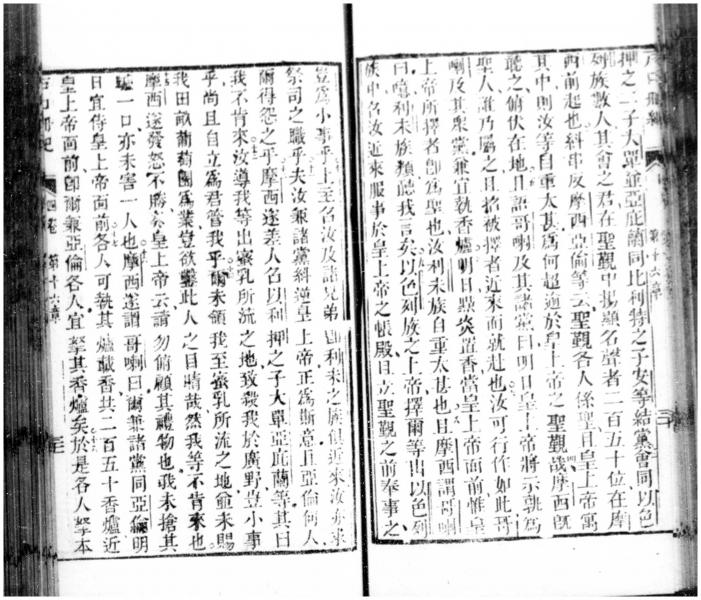 第十六章
押之二子大單並亞庇蘭同比利特之子安等結黨會同以色
列族數人其會之君在聖覿中揚顯名聲者二百五十位在摩
西前起也糾串反摩西亞倫等云聖覿各人係聖且皇上帝寓
其中則汝等自重太甚為何超逾於皇上帝之聖覿哉摩西既
聽之俯伏在地且語哥喇及其諸黨曰明日皇上帝將示孰為
聖人誰乃屬之且招被擇者近來而就赴也汝可行作如此哥
喇及其眾黨兼宜執香爐明日點炎置香當皇上帝面前惟皇
上帝所擇者卽為聖也汝利未族自重太甚也且摩西謂哥喇
曰噫利未族類聽我言矣以色列族之上帝擇爾等出以色列
族中名汝近來服事於皇上帝之帳殿且立聖覿之前奉事之
豈為小事乎上至名汝及諸兄弟卽利未之族俱近來汝亦求
祭司之職乎夫汝兼諸黨糾逆皇上帝正為斯意且亞倫何人
爾得怨之乎摩西遂差人名以利押之子大單亞庇蘭等其曰
我不肯來汝導我等出蜜乳所流之地致殺我於廣野豈小事
乎尚且自立為君管我乎爾未領我至蜜乳所流之地並未賜
我田畝葡萄園為業豈欲鑿此人之目睛哉然我等不肯來也
摩西遂發怒不勝奏皇上帝云請勿俯顧其禮物也我未搶其
驢一口亦未害一人也摩西遂謂哥喇曰爾兼諸黨同亞倫明
日宜侍皇上帝面前各人可執其爐載香共二百五十香爐近
皇上帝面前卽爾兼亞倫各人宜拏其香爐矣於是各人拏本
四卷 第十六章